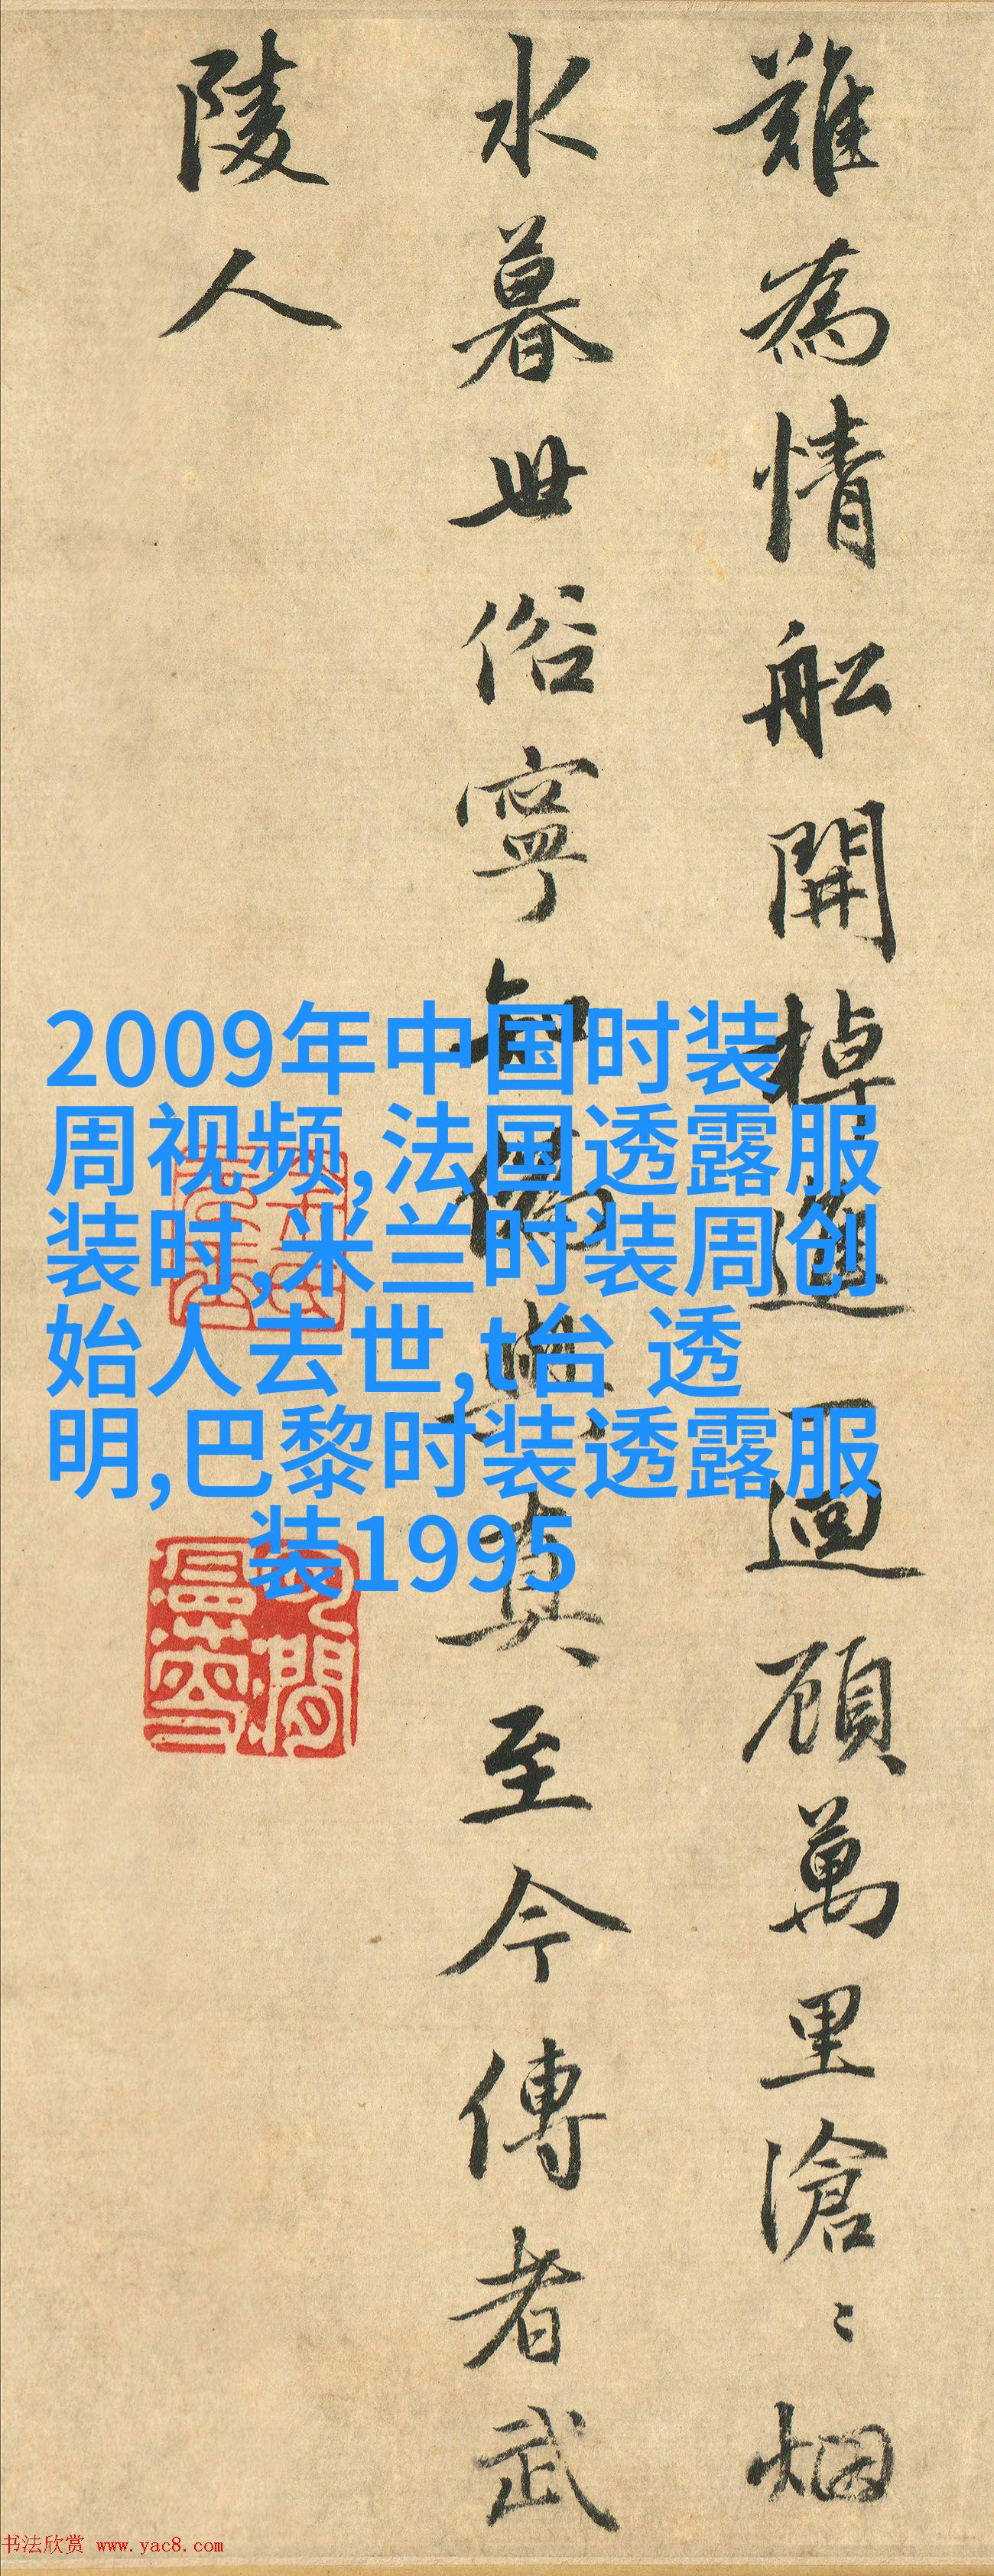 難為情舩開棹進一迴顧萬里滄〻烟
水暮世俗寧知偽與真至今傳者武
陵人
2009年中国时装
周视频,法国透露服
装时,米兰时装周创
始人去世,t台 透
明,巴黎时装透露服
装1995
书法欣赏 www.yac8.com